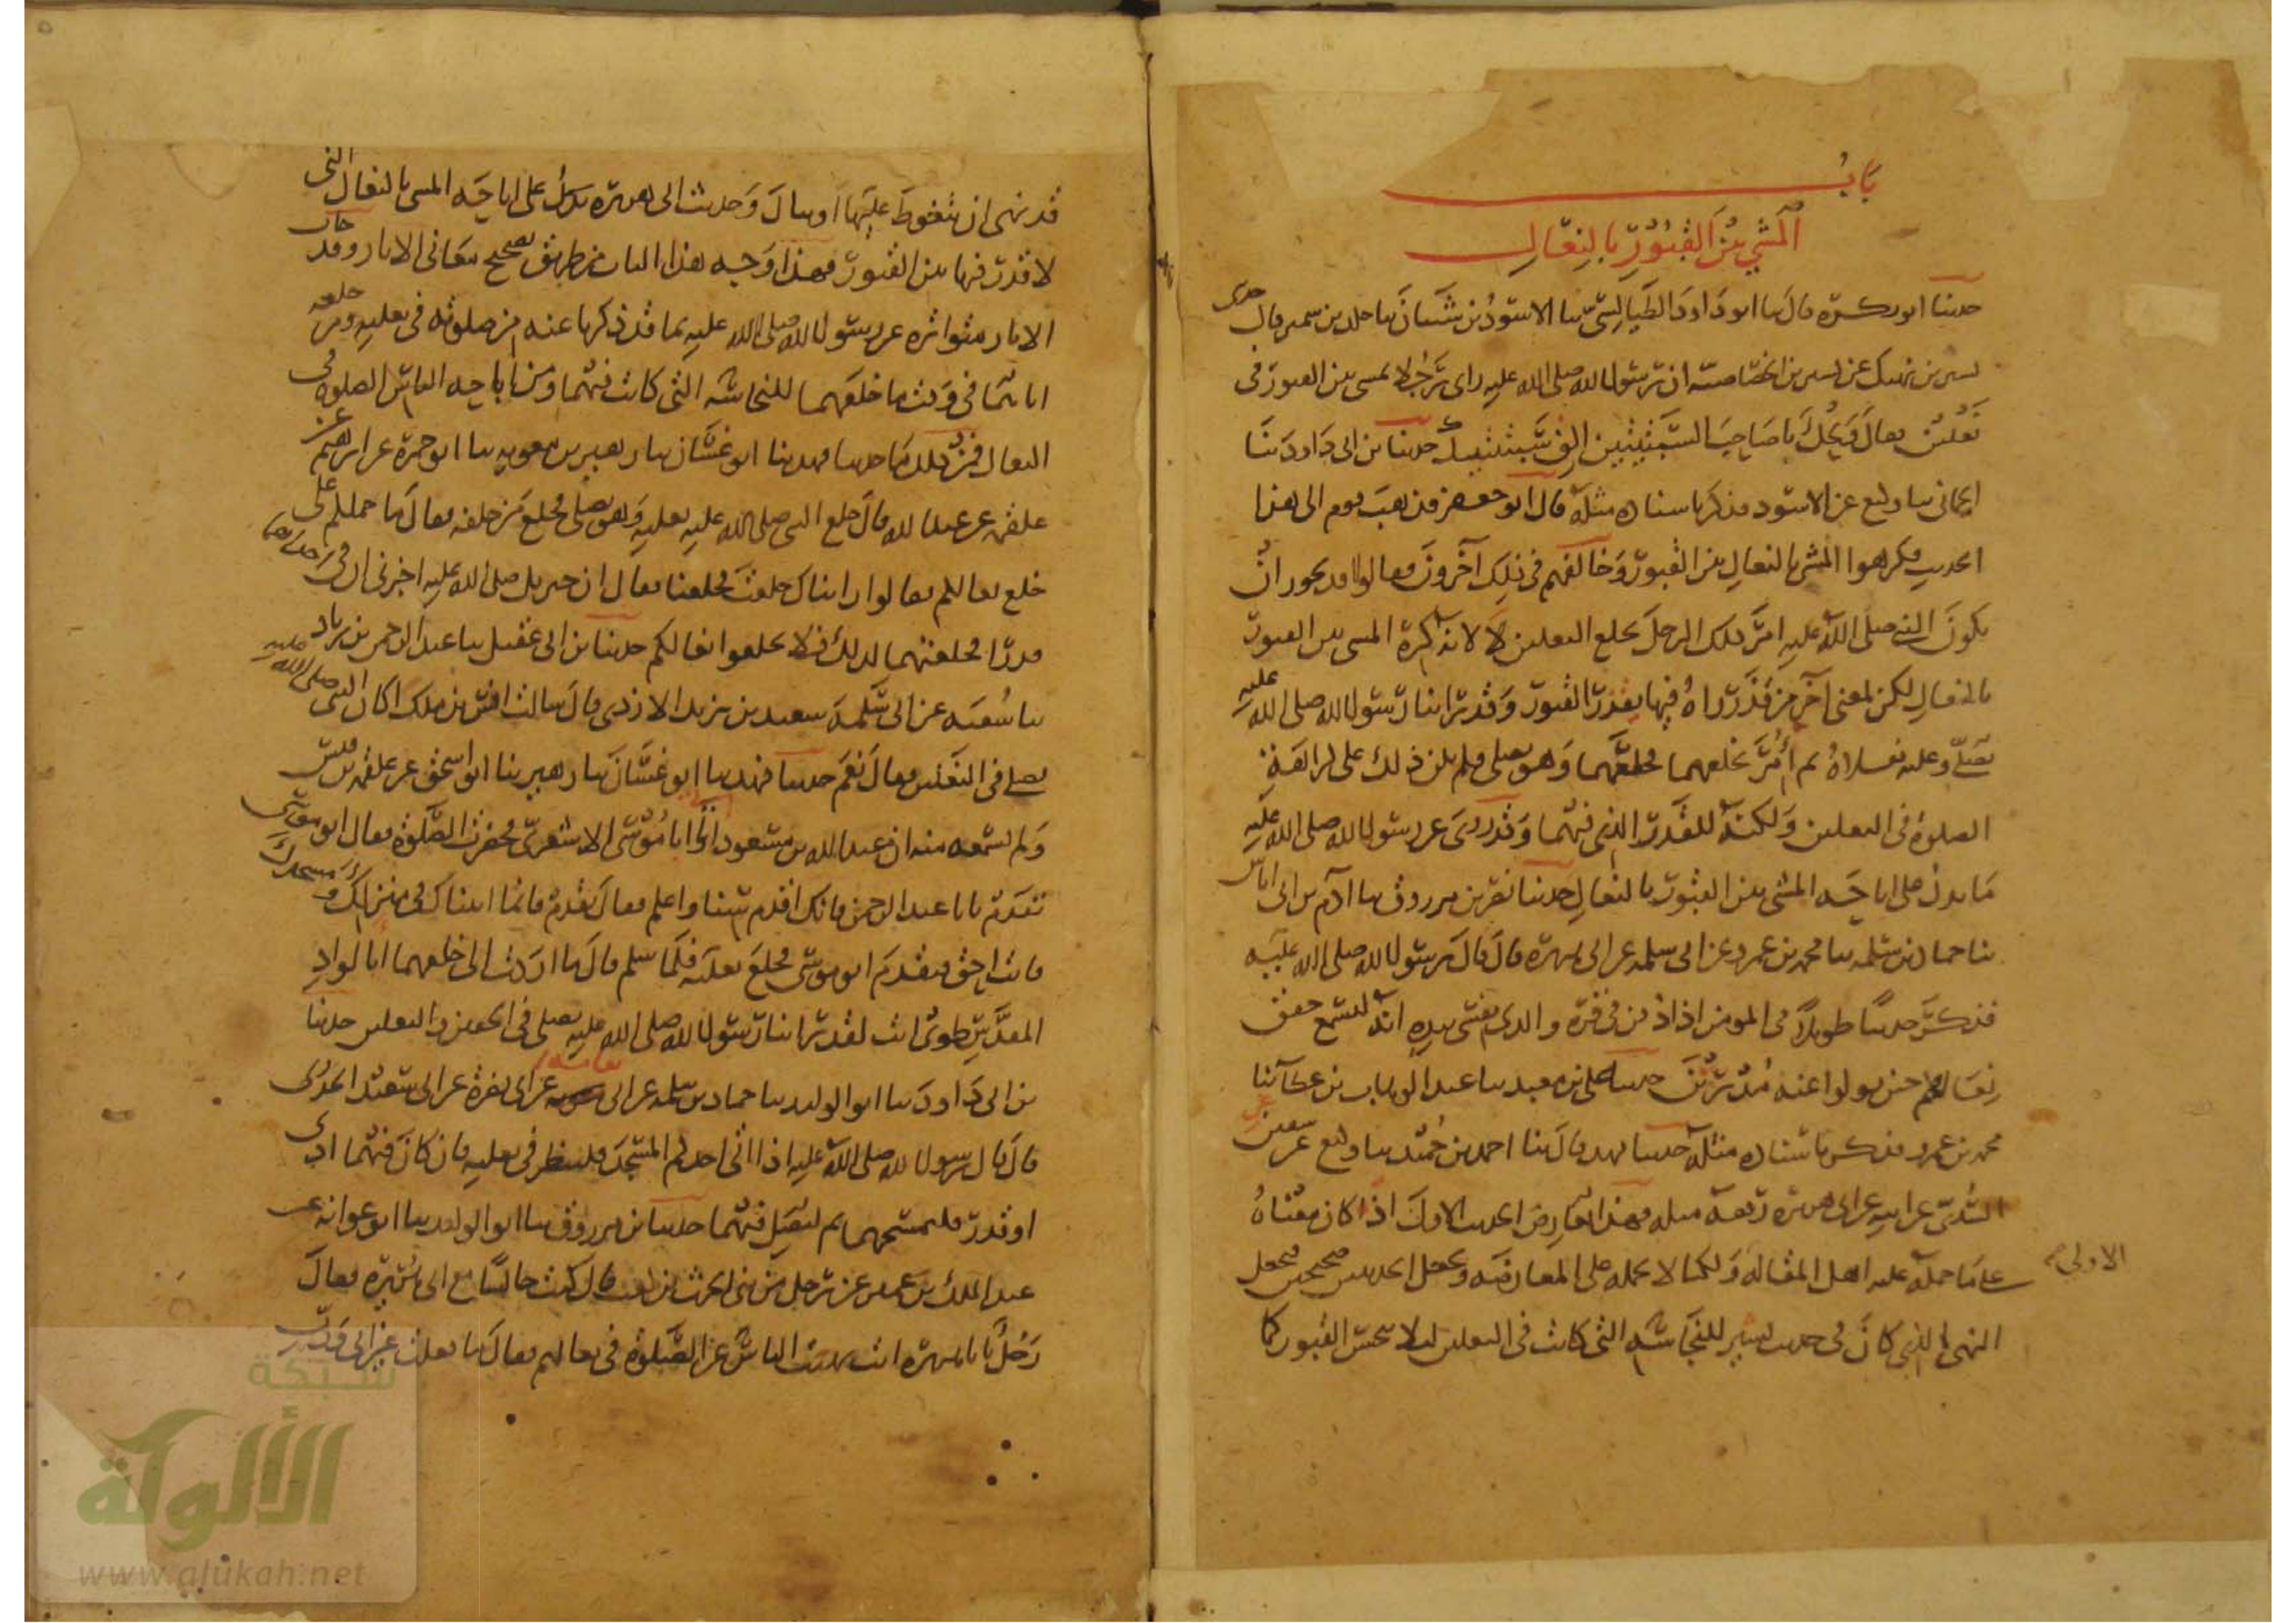 باب
المشي بين القبور بالنعال
حدثنا ابو بكرة قال ثنا ابو داود الطيالسي ثنا الاسود بن شيبان ثنا خلد بن سمير قال حدثني
بشير بن نهيك عن بشير بن الخصاصية ان رسول الله صلى الله عليه راى رجلا يمشي بين القبور في
نعلين فقال ويحك يا صاحب السبتيتين الق سبتيتيك حدثنا بن ابى داود ثنا
الحماني ثنا وكيع عن الاسود فذكر باسناده مثله قال ابو جعفر فذهب قوم الى هذا
الحديث فكرهوا المشي بالنعال بين القبور وخالفهم في ذلك آخرون فقالوا قد يجوز ان
يكون النبي صلى الله عليه امر ذلك الرجل بخلع النعلين لا لانه كره المشي بين القبور
بالنعال لكن لمعنى آخر من قذر رآه فيهما يقذر القبور وقد راينا رسول الله صلى الله عليه
يصلي وعليه نعلاه ثم أمر بخلعهما فخلعهما وهو يصلي فلم يكن ذلك على كراهة
الصلوة في النعلين ولكنه للقذر الذي فيهما وقد روى عن رسول الله صلى الله عليه
ما يدل على اباحة المشي بين القبور بالنعال حدثنا نصر بن مرزوق ثنا آدم بن ابى اياس
ثنا حماد بن سلمه ثنا محمد بن عمرو عن ابى سلمه عن ابى هريرة قال قال رسول الله صلى الله عليه
فذكر حديثا طويلا في المومن اذا دفن في قبره والذي نفسي بيده انه ليسمع خفق
نعالهم حين يولوا عنه مدبرين حدثنا على بن معبد ثنا عبد الوهاب بن عطآ ثنا
محمد بن عمرو فذكر باسناده مثله حدثنا فهد قال ثنا احمد بن حميد ثنا وكيع عن سفين عن
السدي عن ابيه عن ابى هريرة رفعه مثله فهذا يعارض الحديث الاول اذا كان معناه
على ما حمله عليه اهل المقاله الاولى ولكنا لا نحمله على المعارضه ونجعل الحديثين صحيحين فنجعل
النهي الذي كان في حديث بشير للنجاسة التي كانت في النعلين لئلا ينجس القبور كما
قد نهى ان يتغوط عليها او يبال وحديث ابى هريرة يدل على اباحه المشي بالنعال التي
لا قذر فيها بين القبور فهذا وجه هذا الباب من طريق تصحيح معاني الاثار وقد جات
الاثار متواترة عن رسول الله صلى الله عليه بما قد ذكرنا عنه من صلوته في نعليه ومن خلعه
اياهما في وقت ما خلعهما للنجاسة التي كانت فيهما ومن اباحه الناس الصلوة في
النعال فمن ذلك ما حدثنا فهد ثنا ابو غسان ثنا زهير بن معويه ثنا ابو حمزة عن ابراهيم عن
علقمه عن عبد الله قال خلع النبي صلى الله عليه نعليه وهو يصلي فخلع من خلفه فقال ما حملكم على
خلع نعالكم فقالوا رايناك خلعت فخلعنا فقال ان جبريل صلى الله عليه اخبرني ان في احداهما
قذرا فخلعتهما لذلك فلا تخلعوا نعالكم حدثنا بن ابى عقيل ثنا عبد الرحمن بن زياد
ثنا شعبه عن ابى سلمة سعيد بن يزيد الازدي قال سالت انس بن ملك اكان النبي صلى الله عليه
يصلي في النعلين فقال نعم حدثنا فهد ثنا ابو غسان ثنا زهير بنا ابو اسحق عن علقمه بن قيس
ولم يسمعه منه ان عبد الله بن مسعود اتى ابا موسى الاشعري فحضرت الصلوة فقال ابو موسى
تقدم يابا عبد الرحمن فانك اقدم سنا واعلم فقال تقدم فانما اتيناك في منزلك ومسجدك
فانت احق فتقدم ابو موسى فخلع نعليه فلما سلم قال ما اردت الى خلعهما ابالواد
المقدس طوى انت لقد راينا رسول الله صلى الله عليه يصلي في الخفين والنعلين حدثنا
بن ابى داود ثنا ابو الوليد ثنا حماد بن سلمه عن ابى نعامه عن ابى نضرة عن ابى سعيد الخدرى
قال قال رسول الله صلى الله عليه اذا اتى احدكم المسجد فلينظر في نعليه فان كان فيهما اذى
او قذر فليمسحهما ثم ليصل فيهما حدثنا بن مرزوق ثنا ابو الوليد ثنا ابو عوانه عن
عبد الملك بن عمير عن رجل من بنى الحرث بن كعب قال كنت جالسا مع ابى هريرة فقال
رجل يابا هريرة انت نهيت الناس عن الصلوة في نعالهم فقال ما فعلت غير انى ورب
شبكة
الألوكة
www.alukah.net